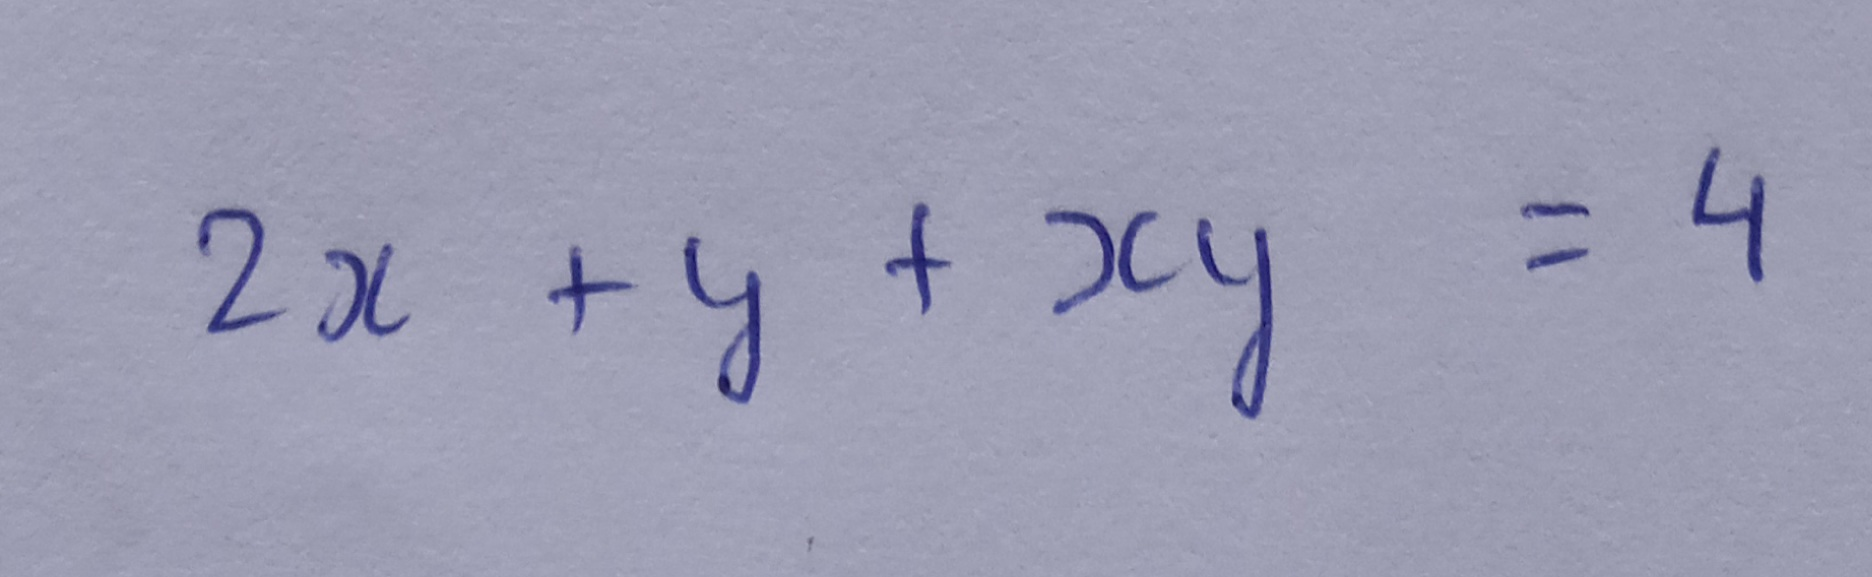 2x + y + xy = 4